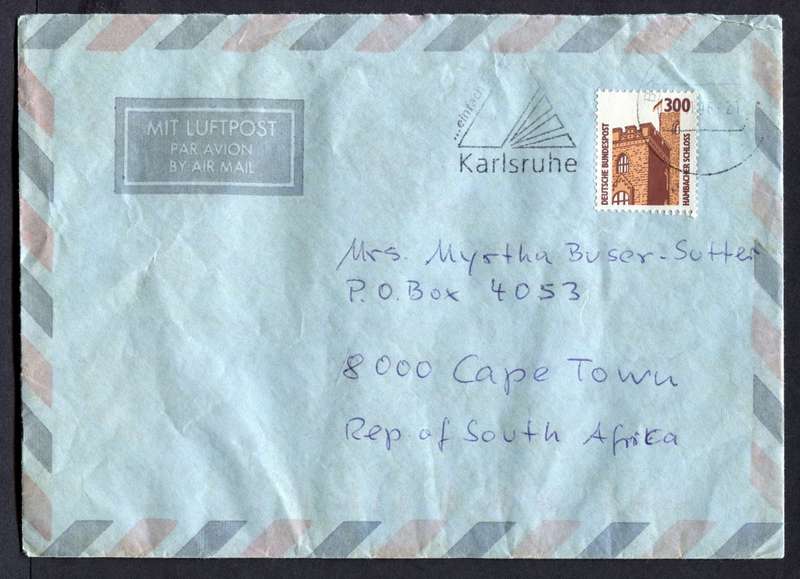 MIT LUFTPOST
PAR AVION
BY AIR MAIL
Karlsruhe
300
DEUTSCHE BUNDESPOST
HAMBACHER SCHLOSS
Mrs. Myrtha Buser-Sutter
P.O.Box 4053
8000 Cape Town
Rep. of South Afrika